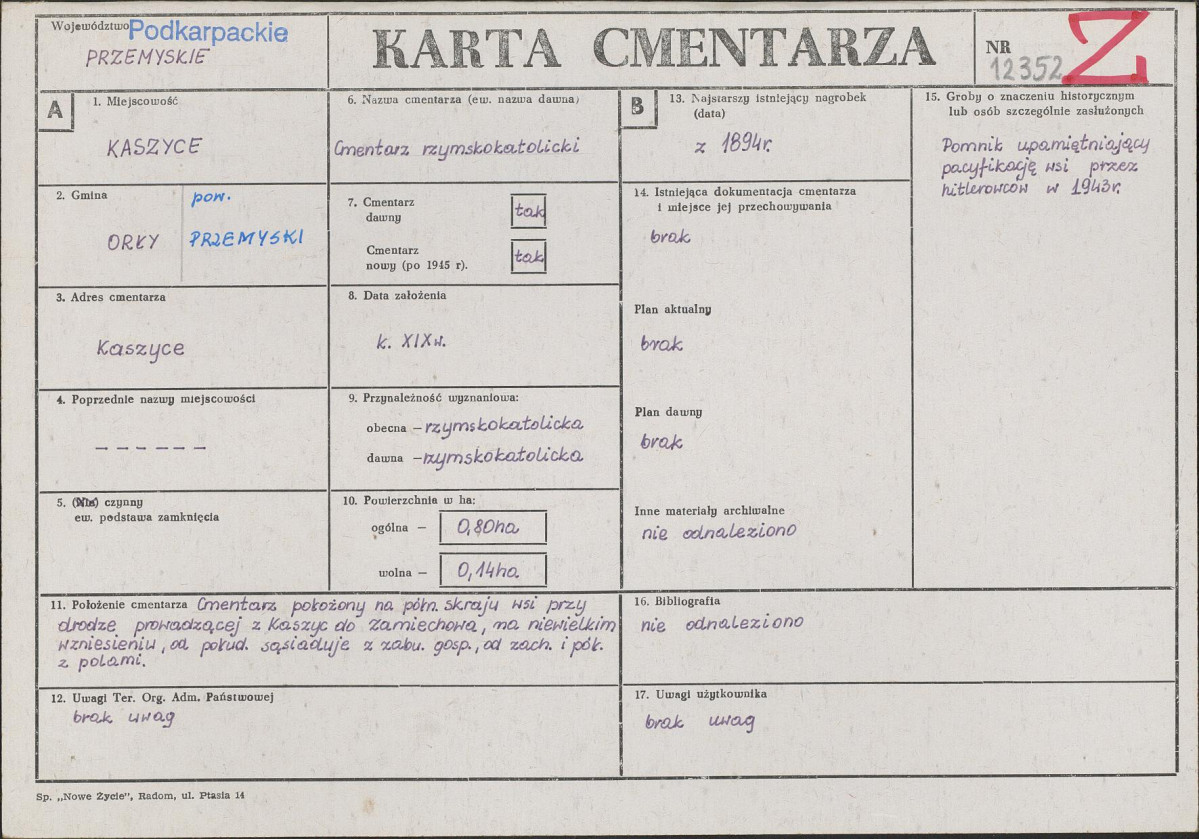 Województwo Podkarpackie
PRZEMYSKIE
KARTA CMENTARZA
NR
12352
Z
A
1. Miejscowość
KASZYCE
2. Gmina
ORŁY
pow.
PRZEMYSKI
3. Adres cmentarza
Kaszyce
4. Poprzednie nazwy miejscowości
– – – – – –
5. (Nie) czynny
ew. podstawa zamknięcia
6. Nazwa cmentarza (ew. nazwa dawna)
Cmentarz rzymskokatolicki
7. Cmentarz
dawny
tak
Cmentarz
nowy (po 1945 r).
tak
8. Data założenia
k. XIXw.
9. Przynależność wyznaniowa:
obecna – rzymskokatolicka
dawna – rzymskokatolicka
10. Powierzchnia w ha:
ogólna – 0,80ha
wolna – 0,14ha.
11. Położenie cmentarza Cmentarz położony na półn. skraju wsi przy
drodze prowadzącej z Kaszyc do Zamiechowa, na niewielkim
wzniesieniu, od połud. sąsiaduje z zabu. gosp., od zach. i pół.
z polami.
12. Uwagi Ter. Org. Adm. Państwowej
brak uwag
B
13. Najstarszy istniejący nagrobek
(data)
z 1894r.
14. Istniejąca dokumentacja cmentarza
i miejsce jej przechowywania
brak
Plan aktualny
brak
Plan dawny
brak
Inne materiały archiwalne
nie odnaleziono
15. Groby o znaczeniu historycznym
lub osób szczególnie zasłużonych
Pomnik upamiętniający
pacyfikację wsi przez
hitlerowców w 1943r.
16. Bibliografia
nie odnaleziono
17. Uwagi użytkownika
brak uwag
Sp. „Nowe Życie", Radom, ul. Ptasia 14